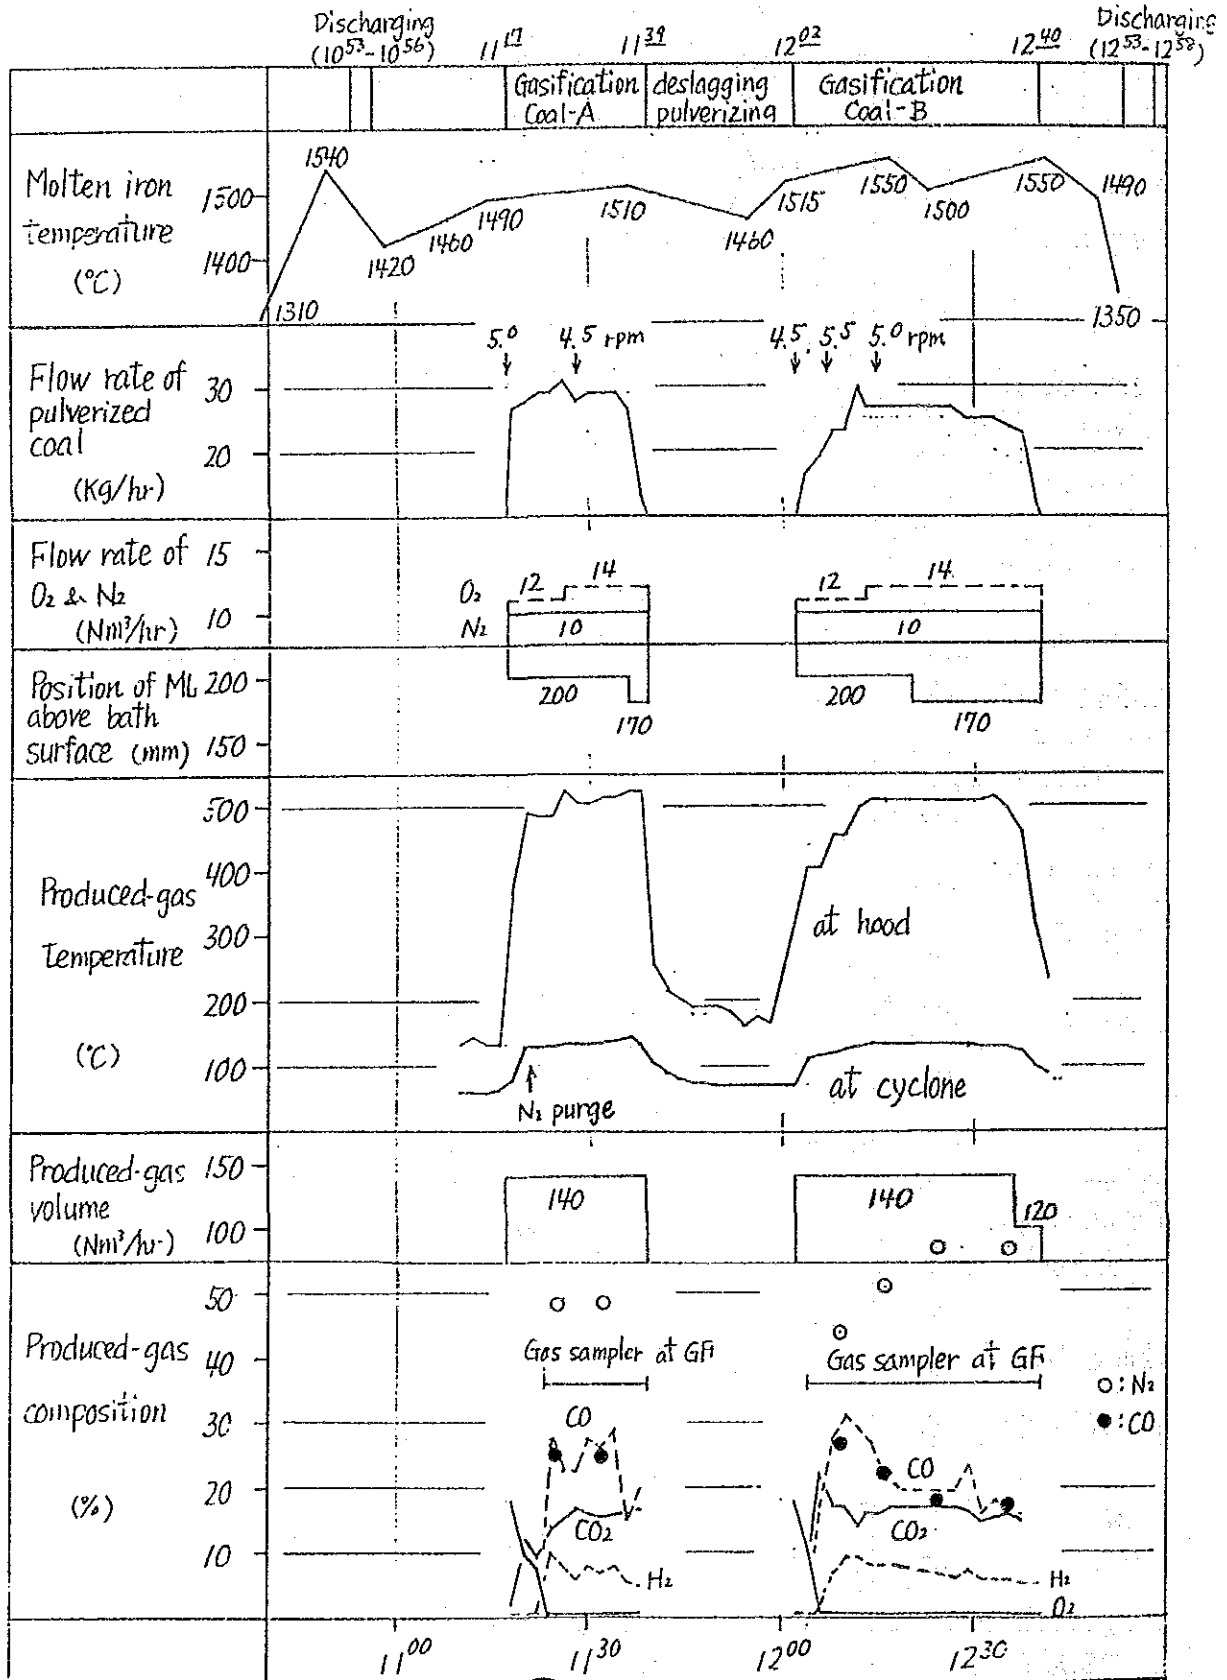 Discharging
(10⁵³-10⁵⁶)
11¹⁷
11³⁹
12⁰²
12⁴⁰
Discharging
(12⁵³-12⁵⁸)
Gasification
Coal-A
deslagging
pulverizing
Gasification
Coal-B
Molten iron
temperature
(°C)
1500
1400
1540
1310
1420
1460
1490
1510
1460
1515
1550
1500
1550
1490
1350
Flow rate of
pulverized
coal
(Kg/hr)
30
20
5.0
4.5 rpm
4.5
5.5
5.0 rpm
Flow rate of
O₂ & N₂
(Nm³/hr)
15
10
O₂
N₂
12
14
10
12
14
10
Position of ML
above bath
surface (mm)
200
150
200
170
200
170
Produced-gas
temperature
(°C)
500
400
300
200
100
at hood
at cyclone
N₂ purge
Produced-gas
volume
(Nm³/hr)
150
100
140
140
120
Produced-gas
composition
(%)
50
40
30
20
10
Gas sampler at GF
Gas sampler at GF
○: N₂
●: CO
CO
CO₂
H₂
CO
CO₂
H₂
O₂
11⁰⁰
11³⁰
12⁰⁰
12³⁰